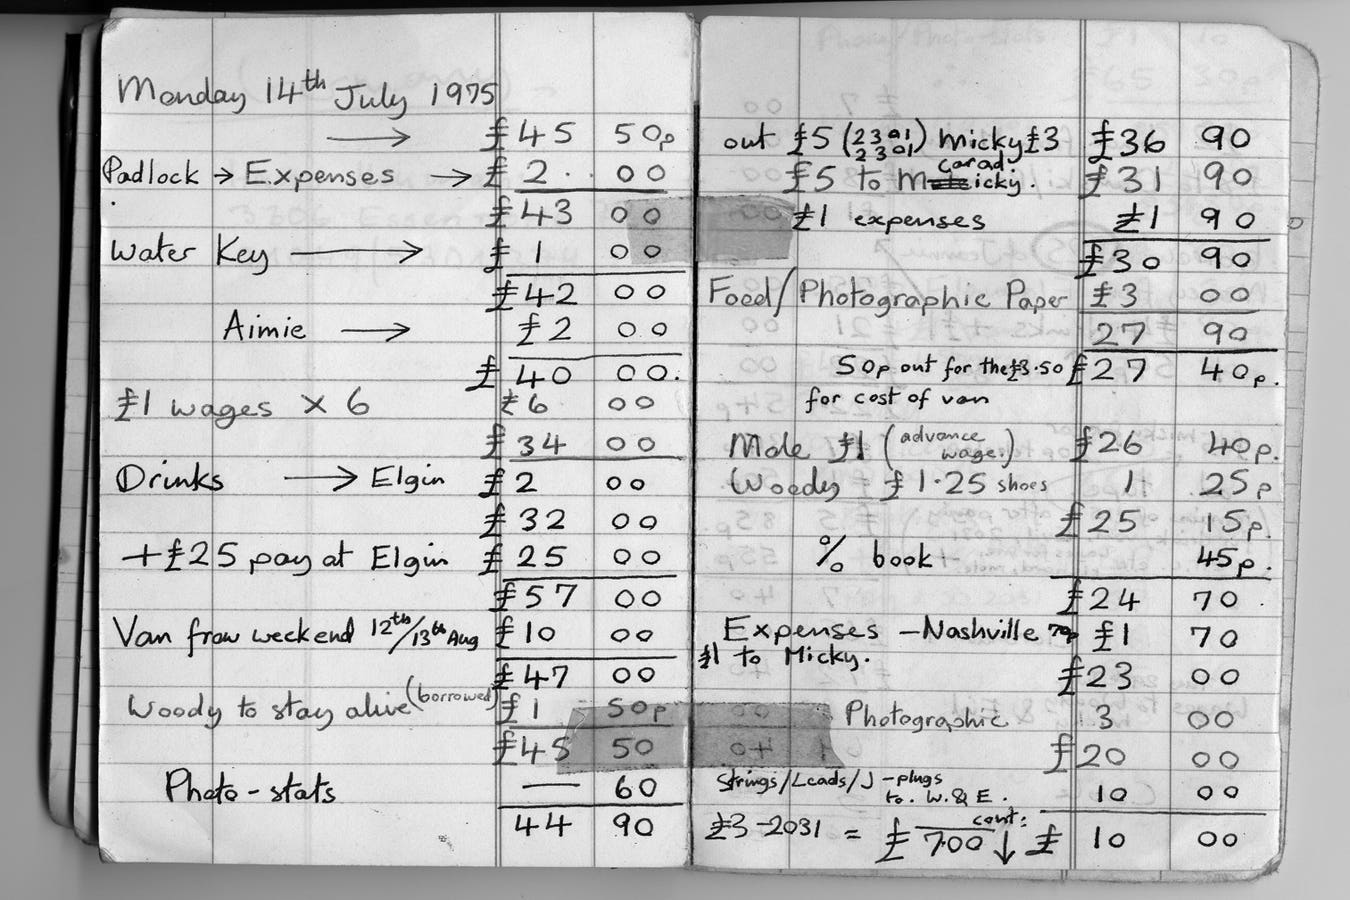 Monday 14th July 1975
→ £45 50p
Padlock → Expenses → £ 2. 00
£43 00
Water Key → £ 1 00
£42 00
Aimie → £2 00
£ 40 00.
£1 wages × 6 £6 00
£ 34 00
Drinks → Elgin £ 2 00
£ 32 00
+£25 pay at Elgin £ 25 00
£57 00
Van from weekend 12th/13th Aug £10 00
£47 00
Woody to stay alive (borrowed) £1 50p
£45 50
Photo-stats — 60
44 90
out £5 (2301) Micky £3 £36 90
2301
carad
£5 to Micky. £31 90
£1 expenses £1 90
£30 90
Food/Photographic Paper £3 00
27 90
50p out for the £3.50 £27 40p.
for cost of van
Mole £1 (advance wage.) £26 40p.
Woody £1.25 shoes 1 25p
£25 15p.
% book 45p.
£24 70
Expenses – Nashville 70p £1 70
£1 to Micky.
£23 00
Photographic 3 00
£20 00
Strings/Leads/J-plugs
to. W. & E. 10 00
£3-2031 = £ 700 cont: ↓ £ 10 00